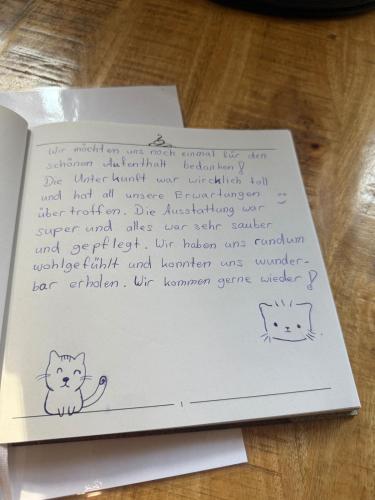 Wir möchten uns noch einmal für den
schönen Aufenthalt bedanken!
Die Unterkunft war wircklich toll
und hat all unsere Erwartungen
übertroffen. Die Ausstattung war
super und alles war sehr sauber
und gepflegt. Wir haben uns rundum
wohlgefühlt und konnten uns wunder-
bar erholen. Wir kommen gerne wieder!
1